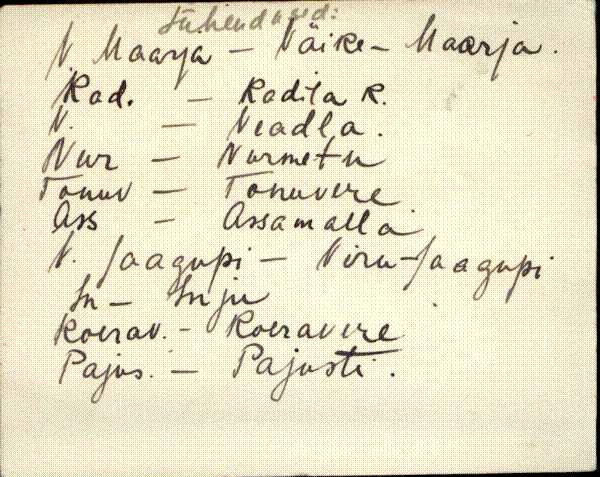 Lühendused:
V. Maarja – Väike-Maarja.
Rad. – Radila k.
V. – Veadla.
Nur – Nurmetu
Tonuv – Tonuvere
Ass – Assamalla
V. Jaagupi – Viru-Jaagupi
In – Inju
Koerav. – Koeravere
Pajus. – Pajusti.